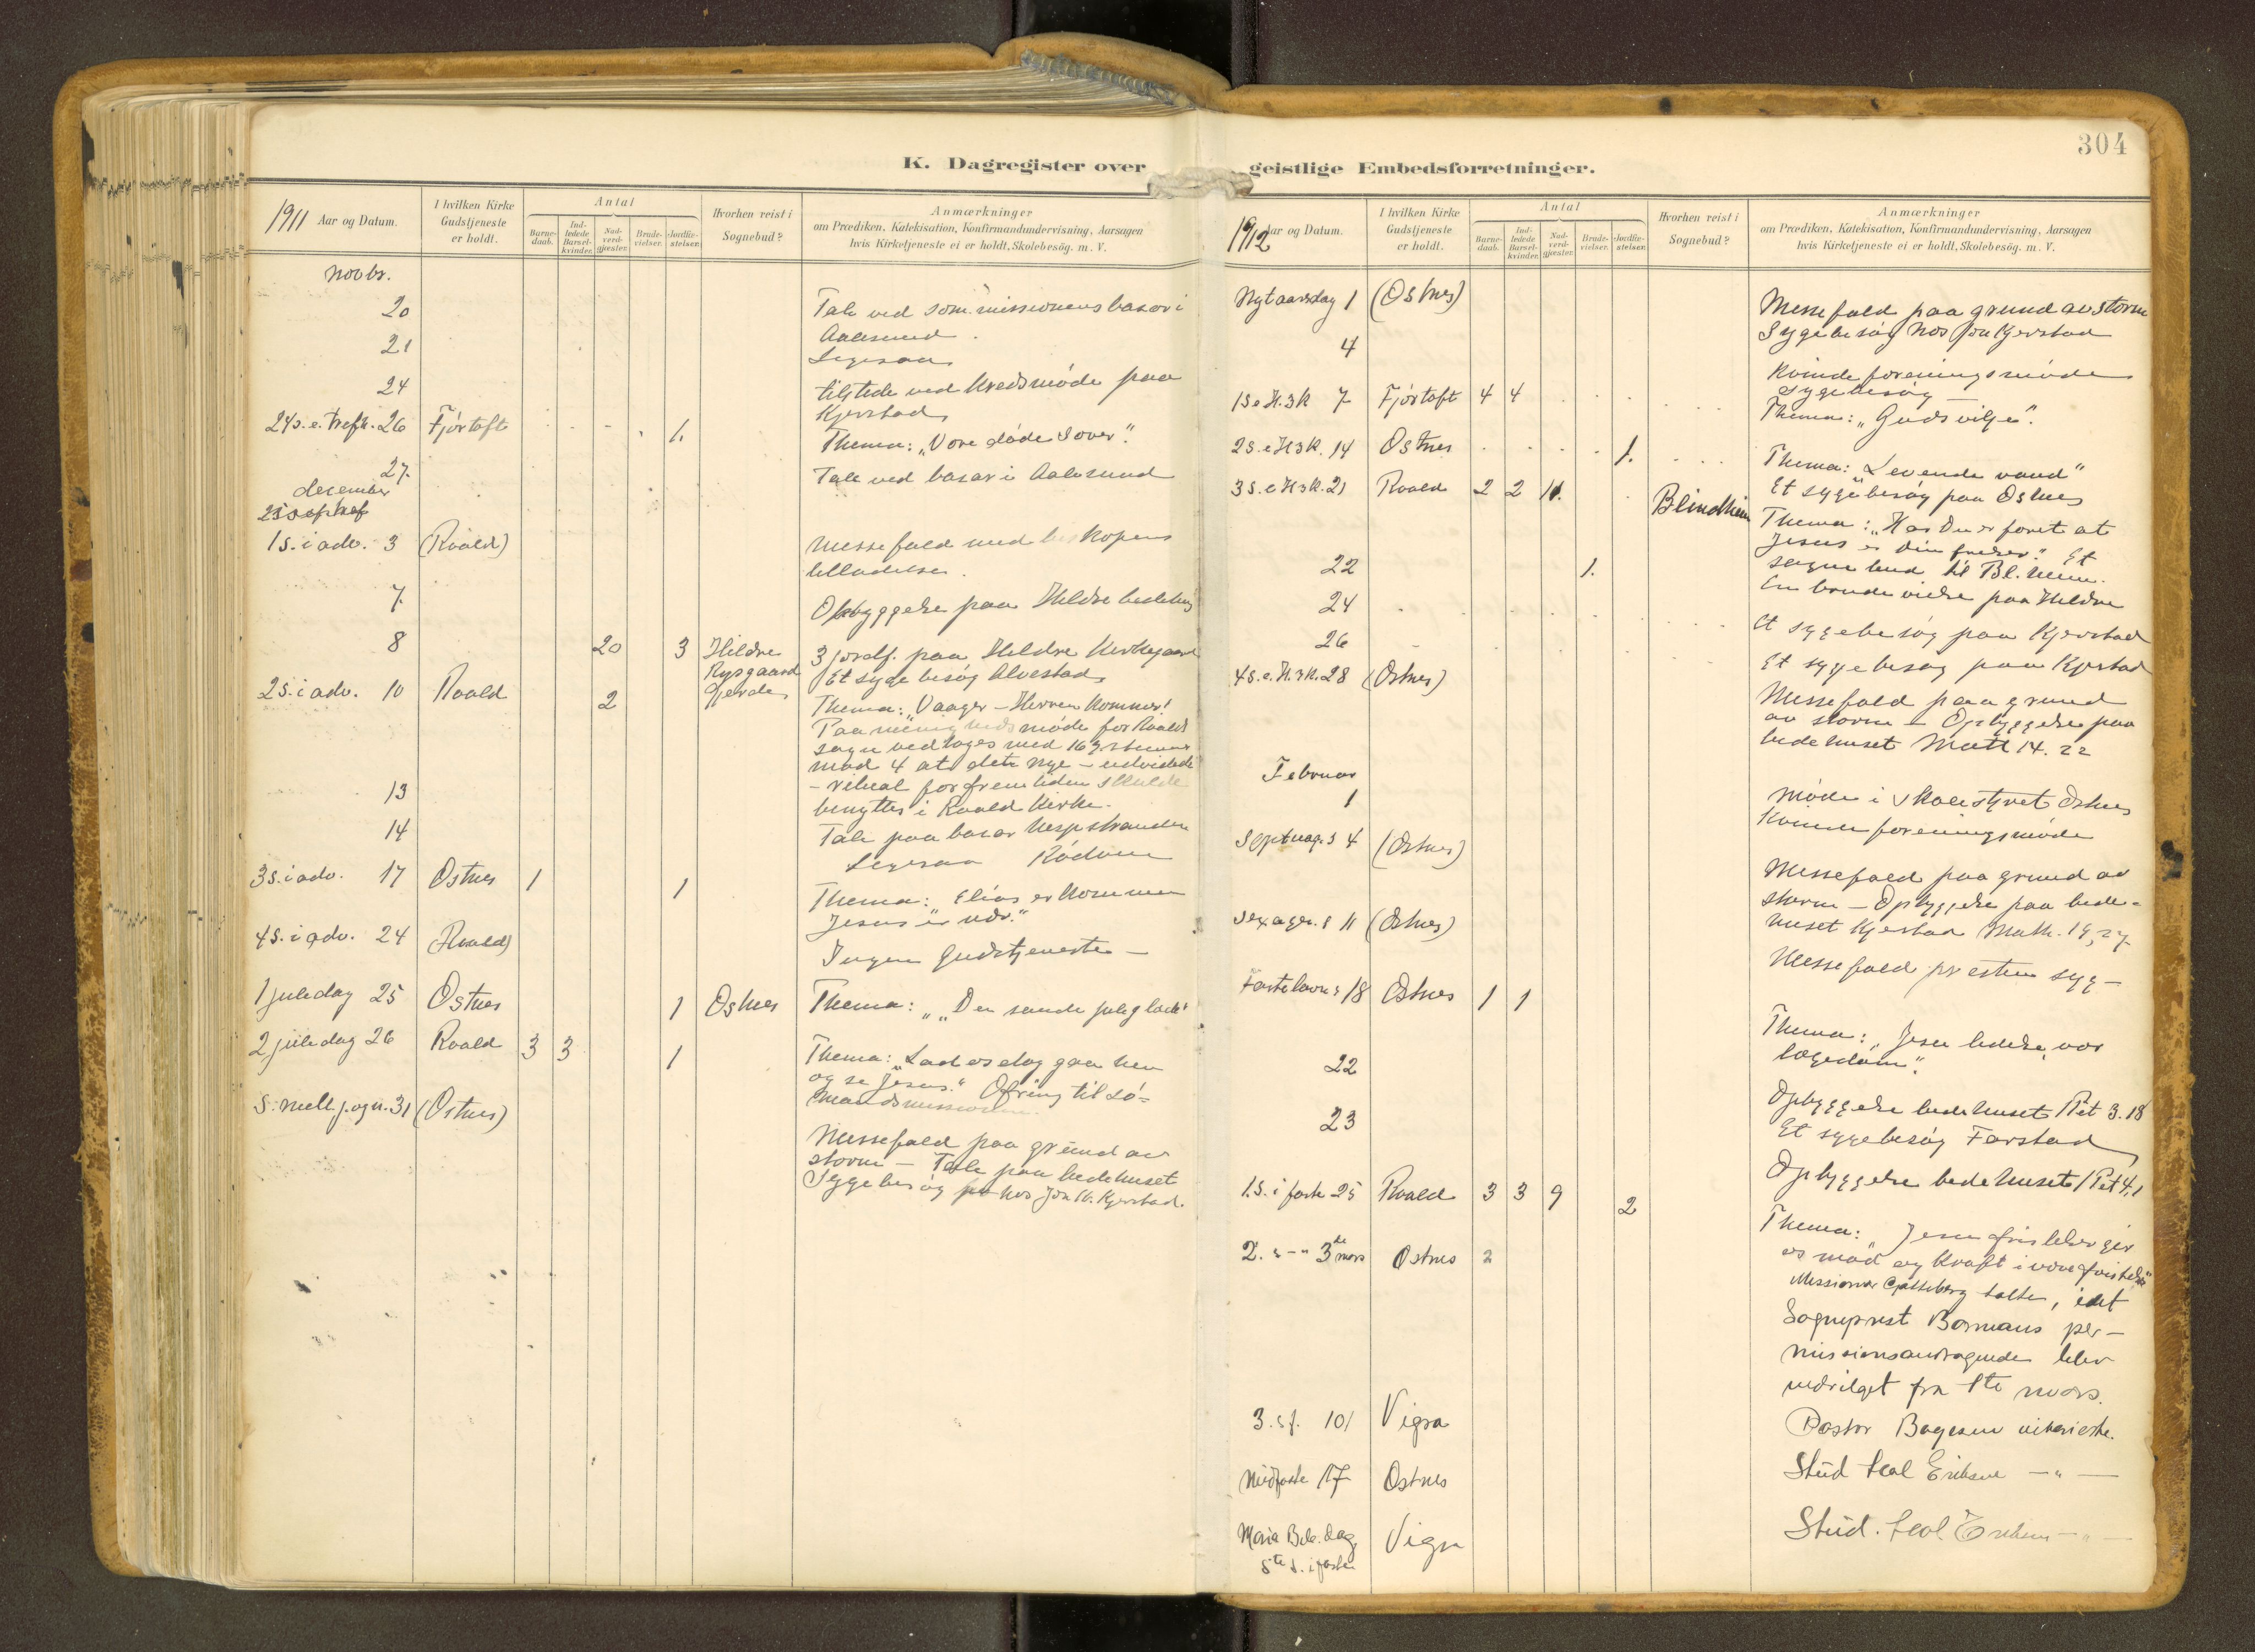 304
K. Dagregister over geistlige Embedsforretninger.
1911 Aar og Datum.
I hvilken Kirke Gudstjeneste er holdt.
Antal
Barne-daab.
Ind-ledede Barsel-kvinder.
Nad-verd-gjester.
Brude-vielser.
Jordfæ-stelser.
Hvorhen reist i Sognebud?
Anmærkninger
om Prædiken, Katekisation, Konfirmandundervisning, Aarsagen
hvis Kirketjeneste ei er holdt, Skolebesøg. m. V.
Novbr.
20 Tale ved sømmissionens basar i
Aalesund.
21
24 tilstede ved kredsmøde paa
Kjerstad
24 s. e. tref. 26 Fjørtoft 1. Thema: "Vore døde sover".
27. Tale ved basar i Aalesund
december
1 s. i adv. 3 (Roald) Messefald med biskopens
tilladelse.
7 Opbyggelse paa Hildre bedehus
8 20 3 Hildre 3 jordf. paa Hildre Kirkegaard
Rysgaard Et sygebesøg Alvestad
Gjerde
2 s. i adv. 10 Roald 2 Thema: "Vaager – Herren kommer!
Paa menighedsmøde for Roald
sogn vedtoges med 16 stemmer
mod 4 at det nye – udvidede
– ritual for fremtiden skulde
benyttes i Roald Kirke.
13 Tale paa basar
14
3 s. i adv. 17 Ostnes 1 1 Thema: "Elias er kommen
Jesus er nær."
4 s. i adv. 24 (Roald) Ingen Gudstjeneste –
1 juledag 25 Ostnes 1 Ostnes Thema: "Den sande juleglæde"
2 juledag 26 Roald 3 3 1 Thema: "Lad os dog gaa hen
og se Jesus." Ofring til sø-
mandsmissionen.
S. mell. j. og n. 31 (Ostnes) Messefald paa grund av
storm – Tale paa bedehuset
Sygebesøg hos Jon K. Kjerstad.
1912 Aar og Datum.
I hvilken Kirke Gudstjeneste er holdt.
Antal
Barne-daab.
Ind-ledede Barsel-kvinder.
Nad-verd-gjester.
Brude-vielser.
Jordfæ-stelser.
Hvorhen reist i Sognebud?
Anmærkninger
om Prædiken, Katekisation, Konfirmandundervisning, Aarsagen
hvis Kirketjeneste ei er holdt, Skolebesøg. m. V.
Nytaarsdag 1 (Ostnes) Messefald paa grund av storm
Sygebesøg hos Jon Kjerstad
4 Kvindeforeningsmøde
Sygebesøg
1 s. e. H. 3 K. 7 Fjørtoft 4 4 Thema: "Guds vilje".
2 s. e. H. 3 K. 14 Ostnes 1. Thema: "Levende vand"
Et sygebesøg paa Ostnes
3 s. e. H. 3 K. 21 Roald 2 2 11. Blindheim Thema: "Har Du erfaret at
Jesus er din frelser." Et
sognebud til Bl.heim.
22 1. En brudevielse paa Hildre
24 Et sygebesøg paa Kjerstad
26 Et sygebesøg paa Kjerstad
4 s. e. H. 3 K. 28 (Ostnes) Messefald paa grund
av storm – Opbyggelse paa
bedehuset Matt 14. 22
Februar
1 Møde i skolestyret Ostnes
Kvindeforeningsmøde
Septuag. s 4 (Ostnes) Messefald paa grund av
storm – Opbyggelse paa bede-
huset Kjerstad Matth. 19, 27
Sexages. s 11 (Ostnes) Messefald presten syg –
Fastelavns s 18 Ostnes 1 1 Thema: "Jesu lidelse vor
lægedom".
22 Opbyggelse bedehuset 1 Pet 3. 18
Et sygebesøg Farstad
23 Opbyggelse bedehuset 1 Pet 4, 1
1. s. i faste 25 Roald 3 3 9 2 Thema: "Jesu fristelser gir
os mod og kraft i vore fristelser"
2. s – " 3de mars Ostnes 2 Missionær talte, idet
Sogneprest Bormans per-
missionsandragende blev
indvilget fra 1ste mars.
3. s. f. 10/ Vigra Pastor Bagesen vikarierte.
Midfaste 17 Ostnes Stud. teol Eriksen – " –
Maria Bebs. dag Vigra Stud. teol Eriksen – " –
5te s. i faste